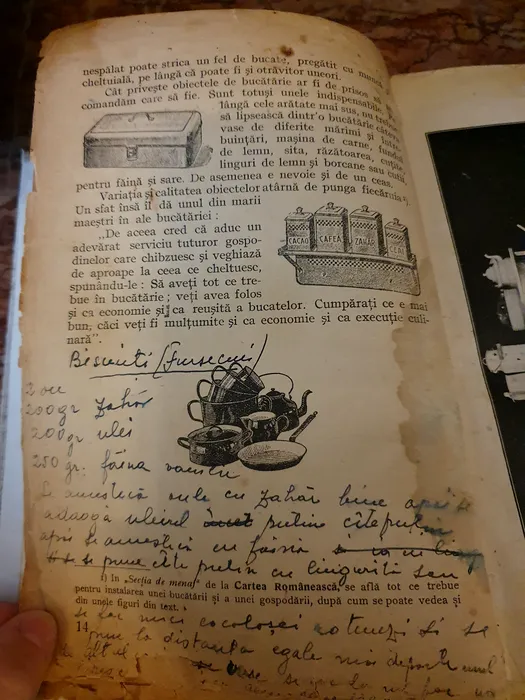 nespălat poate strica un fel de bucate, pregătit cu multă
cheltuială, pe lângă că poate fi și otrăvitor uneori.
Cât privește obiectele de bucătărie ar fi de prisos să
comandăm care să fie. Sunt totuși unele indispensabile,
lângă cele arătate mai sus, nu trebue
să lipsească dintr'o bucătărie
vase de diferite mărimi și
buințări, mașina de carne,
de lemn, sita, răzătoarea,
linguri de lemn și borcane sau
pentru făină și sare. De asemenea e nevoie și de un ceas.
Variația și calitatea obiectelor atârnă de punga fiecăruia
Un sfat însă îl dă unul din marii
maeștri în ale bucătăriei :
„De aceea cred că aduc un
adevărat serviciu tuturor gospo-
dinelor care chibzuesc și veghiază
de aproape la ceea ce cheltuesc,
spunându-le : Să aveți tot ce tre-
bue în bucătărie ; veți avea folos
și ca economie și ca reușită a bucatelor. Cumpărați ce e mai
bun, căci veți fi mulțumite și ca economie și ca execuție culi-
nară".
CACAO CAFEA ZAHĂR CEAI
Biscuiți (Fursecuri)
2 ou
200gr zahăr
200gr ulei
250 gr. făina
Se amestică cu zahăr bine apoi se
adaogă uleiul puține câte puțin
apoi se amestică cu făina
se pune câte puțin cu lingurița
1) In „Secția de menaj" de la Cartea Românească, se află tot ce trebue
pentru instalarea unei bucătării și a unei gospodării, după cum se poate vedea și
din unele figuri din text.
se fac cocoloșei rotunzi și se
14
pune la distanța egale